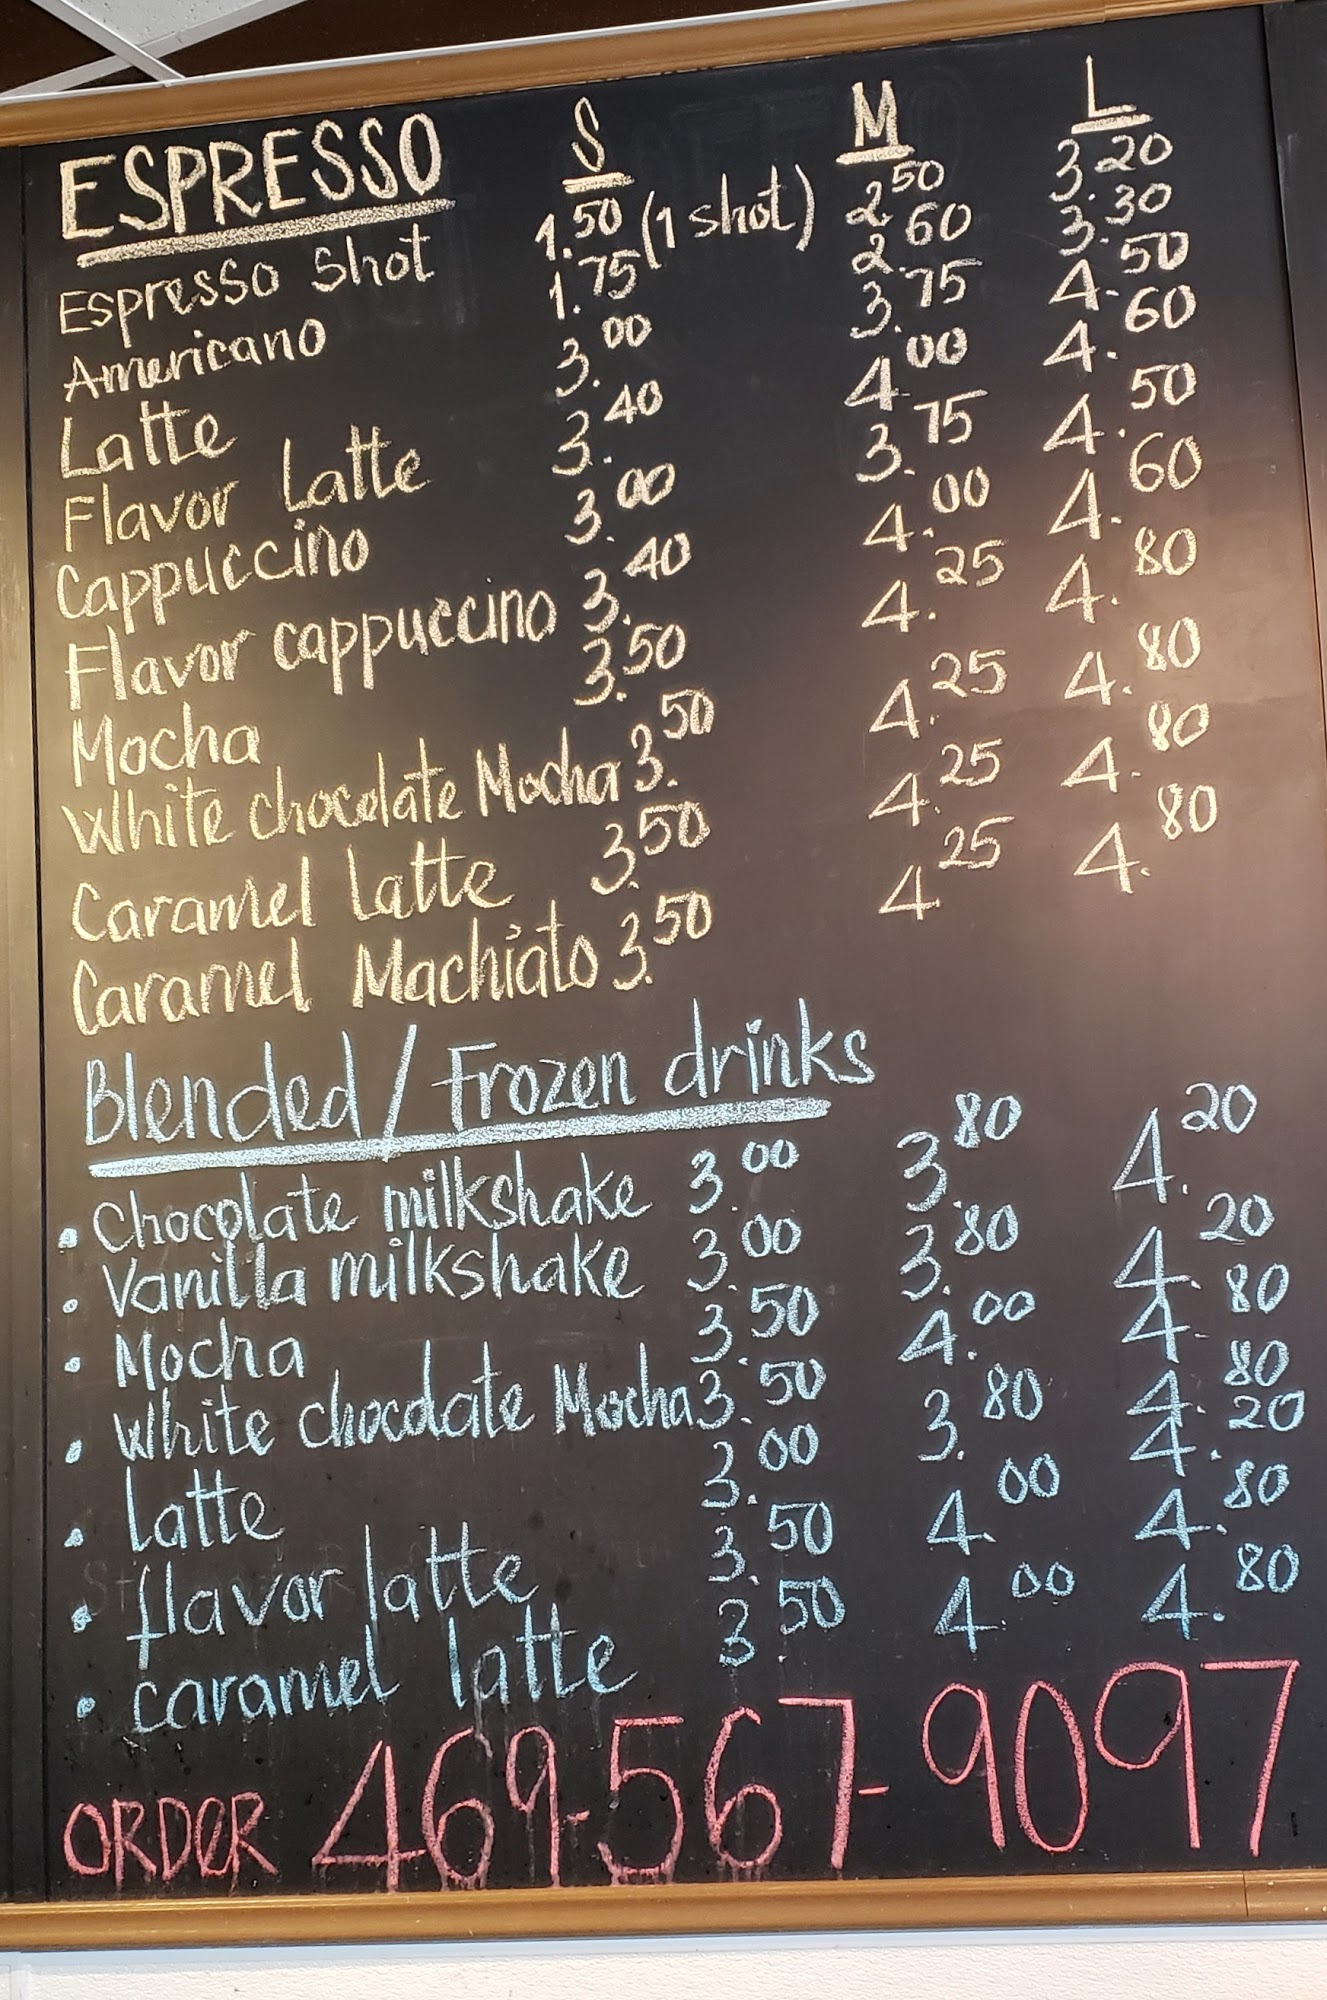 ESPRESSO S M L
Espresso Shot 1.50 (1 shot) 2.50 3.20
Americano 1.75 2.60 3.30
Latte 3.00 3.75 4.50
Flavor Latte 3.40 4.00 4.60
Cappuccino 3.00 3.75 4.50
Flavor cappuccino 3.40 4.00 4.60
Mocha 3.50 4.25 4.80
White chocolate Mocha 3.50 4.25 4.80
Caramel latte 3.50 4.25 4.80
Caramel Machiato 3.50 4.25 4.80
Blended / Frozen drinks
• Chocolate milkshake 3.00 3.80 4.20
• Vanilla milkshake 3.00 3.80 4.20
• Mocha 3.50 4.00 4.80
• White chocolate Mocha 3.50 4.80
• Latte 3.00 3.80 4.20
• flavor latte 3.50 4.00 4.80
• caramel latte 3.50 4.00 4.80
ORDER 469-567-9097